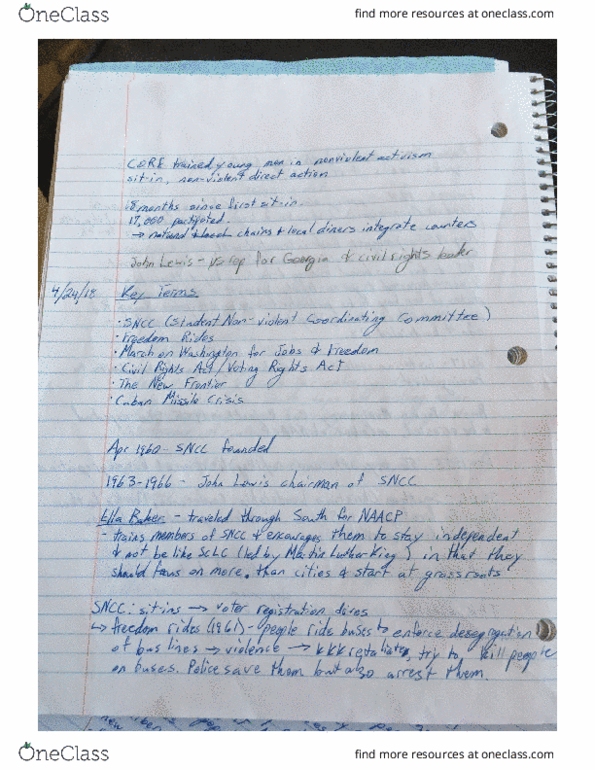 OneClass
find more resources at oneclass.com
CORE trained young men in nonviolent activism
sit-in, non-violent direct action
18 months since first sit-in.
17,000
→ national & local chains & local diners integrate counters
John Lewis - US rep for Georgia & civil rights leader
4/24/18 Key Terms
· SNCC (Student Non-violent Coordinating Committee)
· Freedom Rides
· March on Washington for Jobs & Freedom
· Civil Rights Act / Voting Rights Act
· The New Frontier
· Cuban Missile Crisis
Apr 1960 - SNCC founded
1963-1966 - John Lewis chairman of SNCC
Ella Baker - traveled through South for NAACP
- trains members of SNCC & encourages them to stay independent
& not be like SCLC (led by Martin Luther King) in that they
should focus on more than cities & start at grassroots
SNCC: sit-ins → voter registration drives
↳ freedom rides (1961) - people ride buses to enforce desegregation
of bus lines → violence → KKK retaliates, try to kill people
on buses. Police save them but also arrest them.
OneClass
find more resources at oneclass.com